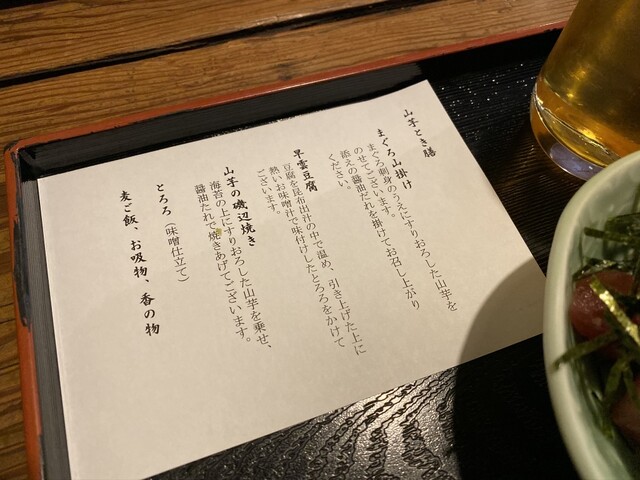 山芋とき膳
まぐろ山掛け
まぐろ刺身のうえにすりおろした山芋を
のせてございます。
添えの醤油だれを掛けてお召し上がり
ください。
早雲豆腐
豆腐を昆布出汁の中で温め、引き上げた上に
熱いお味噌汁で味付けしたとろろをかけて
ございます。
山芋の磯辺焼き
海苔の上にすりおろした山芋を乗せ、
醤油だれで焼きあげてございます。
とろろ（味噌仕立て）
麦ご飯、お吸物、香の物